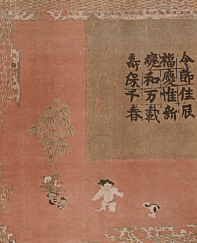 令節佳辰
福慶惟新
爕和万載
壽保千春